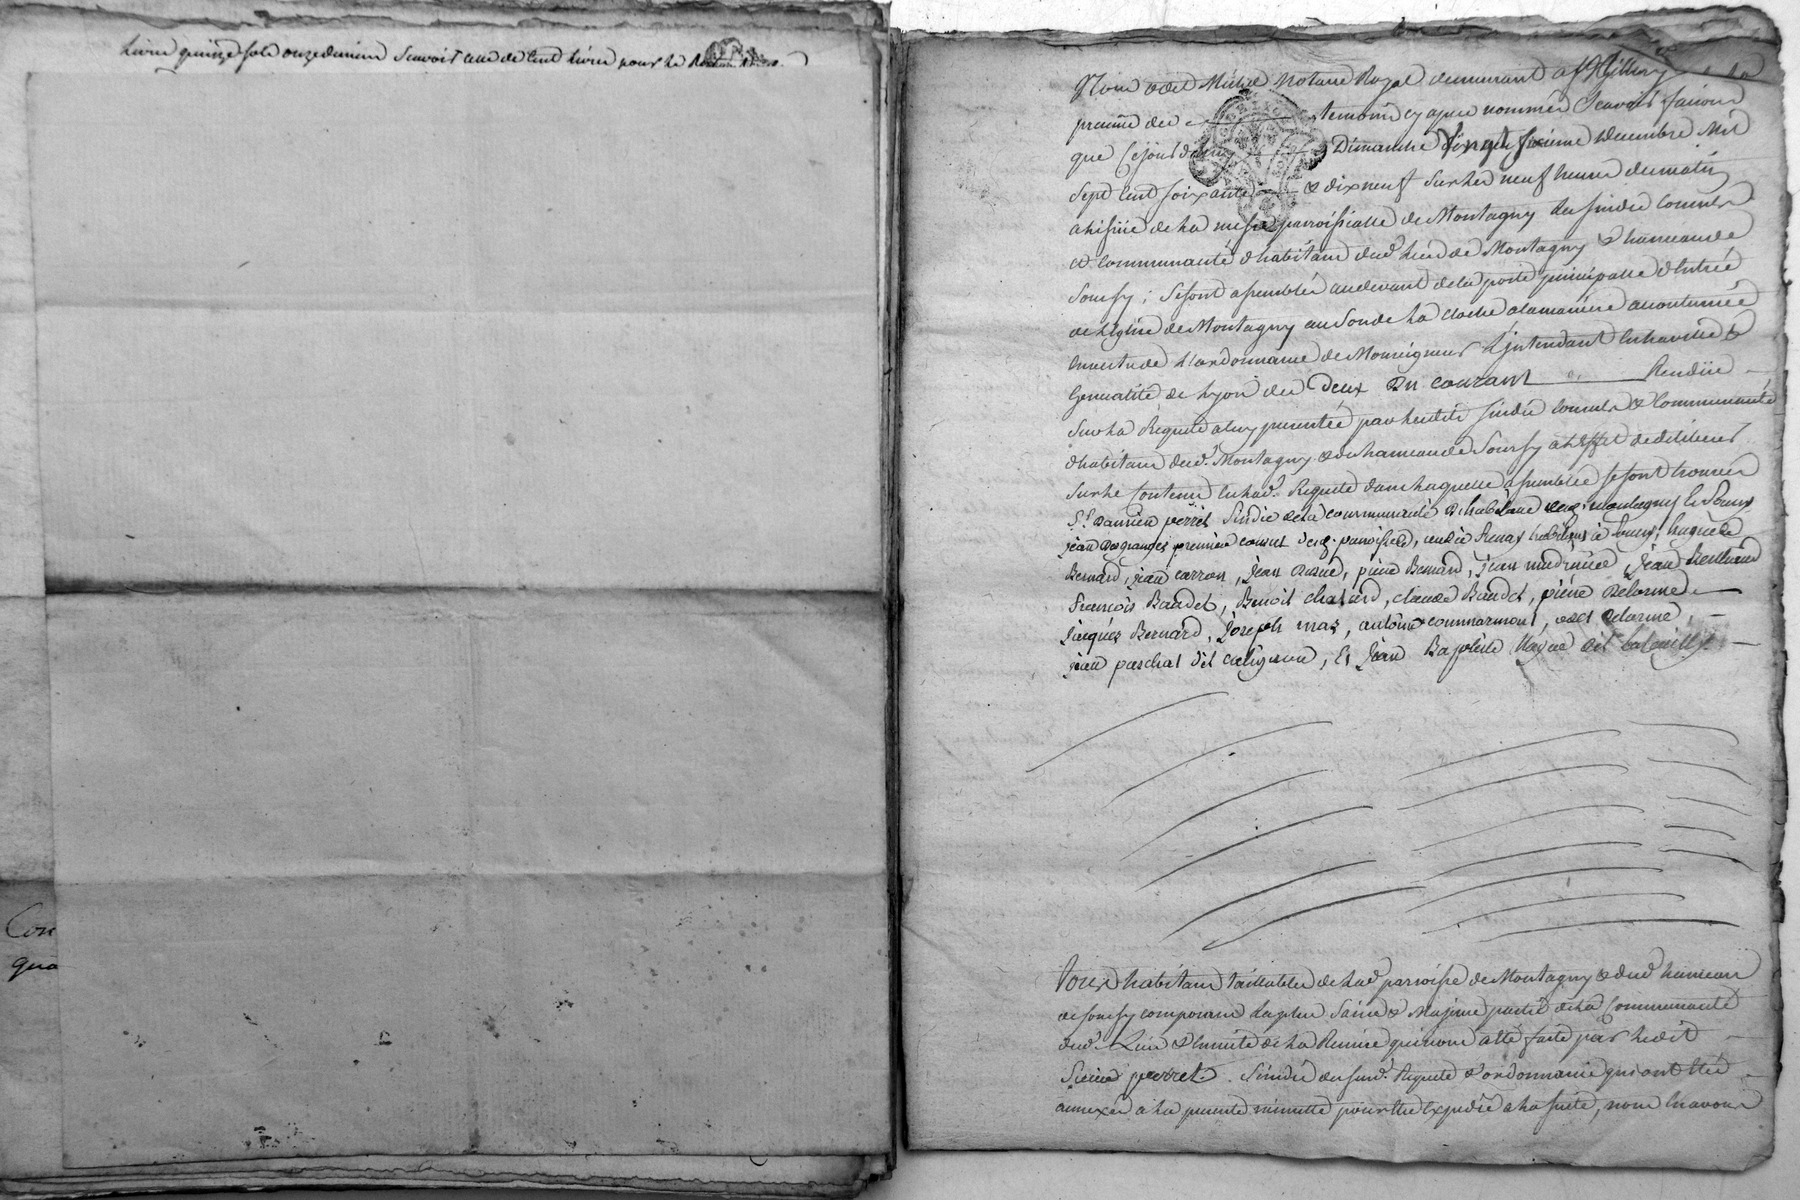 Livres quinze sols onze deniers Scavoir celle de Cent Livres pour la
Con
qua
Nous Michel Notaire Royal demeurant a Millery
presence des temoins cy apres nommés Scavoir faisons
que Cejourdhuy Dimanche vingt sixieme decembre Mil
Sept Cent soixante & dix neuf Sur les neuf heures du matin
a lissüe de la messe parroissialle de Montagny les sindic Consuls
et Communauté d'habitans dud. lieu de Montagny & hameau de
Sourzy ; Se sont assemblés au devant de la porte principalle d'Entrée
de leglise de Montagny au Son de la cloche a la maniere accoutumée
En vertu de l'ordonnance de Monseigneur L'jntendant En la ville &
Generalité de Lyon du Deux du courant Rendüe
Sur la Requete a luy presentée par lesdits sindic Consuls & Communauté
d'habitans dud. Montagny & du hameau de Sourzy a L'Effet de deliberer
Sur le Contenu En lad. Requete dans laquelle assemblée se sont trouvés
Sr. Damien perret Sindic de la communauté d'habitans dud. montagny le Sieur
jean Desgranges premier consul de lad. parroisse, andré habitans a Sourzy,
Bernard, jean carron, jean , pierre Bernard, jean , jean Berthaud
françois Baudet, Benoit chatard, claude Baudet, pierre Delorme
jacques Bernard, joseph mas, antoine commarmont, Delorme,
jean paschal dit , Et jean Baptiste dit
Tous habitans taillables de lad. parroisse de Montagny & dud. hameau
de Sourzy composans la plus Saine & Majeure partie de la Communauté
dud. Lieu Ensuite de la Remise qui nous a Eté faite par ledit
Sieur perret Sindic des susd. Requete & ordonnance qui ont Eté
annexés a la presente minutte pour Etre Expedié a la suite, nous En avons